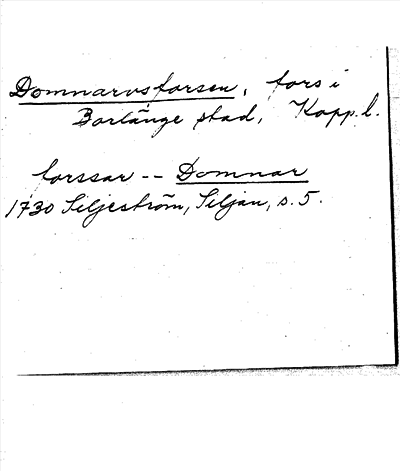 Domnarvsforsen, fors i
Borlänge stad, Kopp.l.
forssar -- Domnar
1730 Siljeström, Siljan, s. 5.